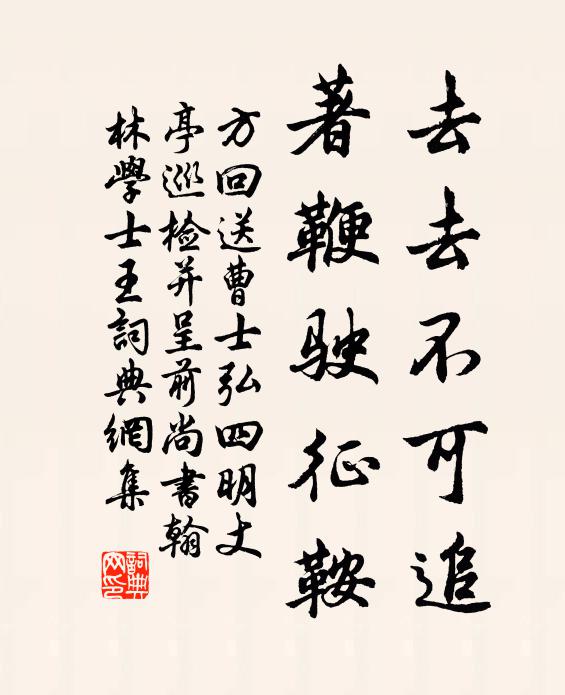 去去不可追
著鞭駛征鞍
方回送曹士弘四明丈
亭巡檢并呈前尚書翰
林學士王詞典網集
詞典
网印